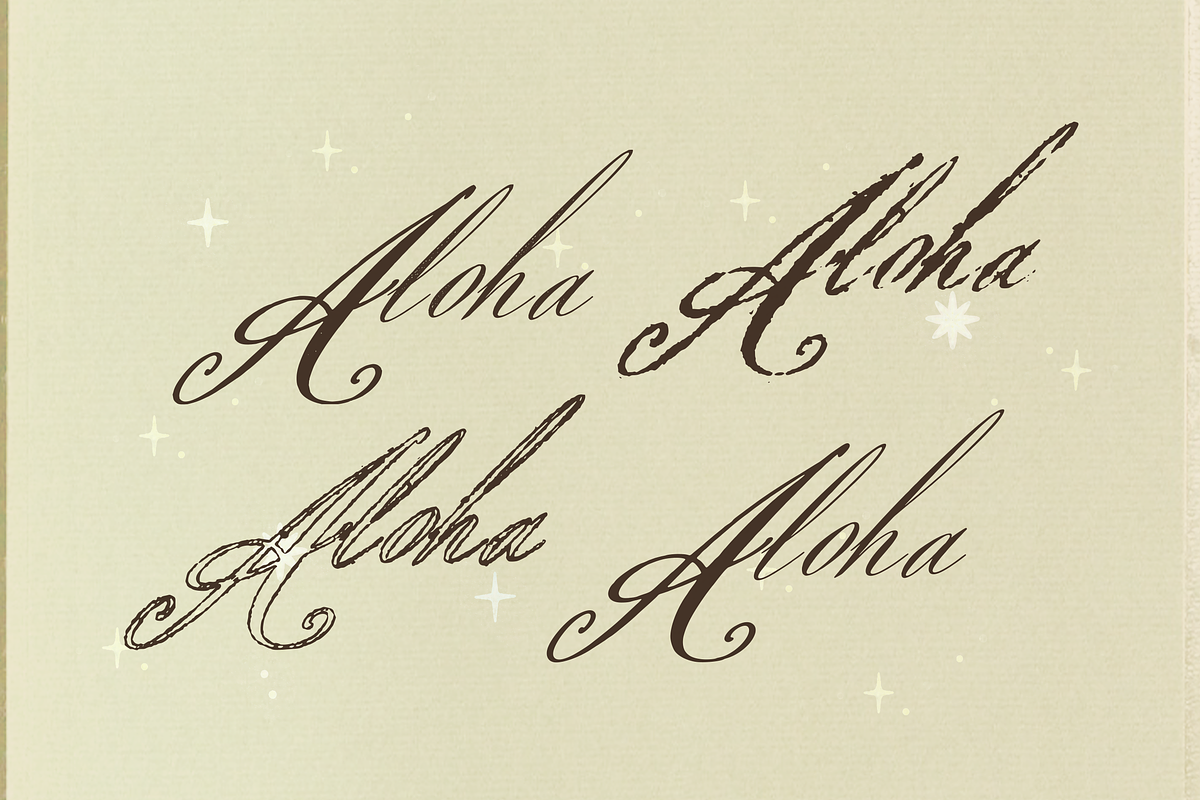 Aloha Aloha
Aloha Aloha